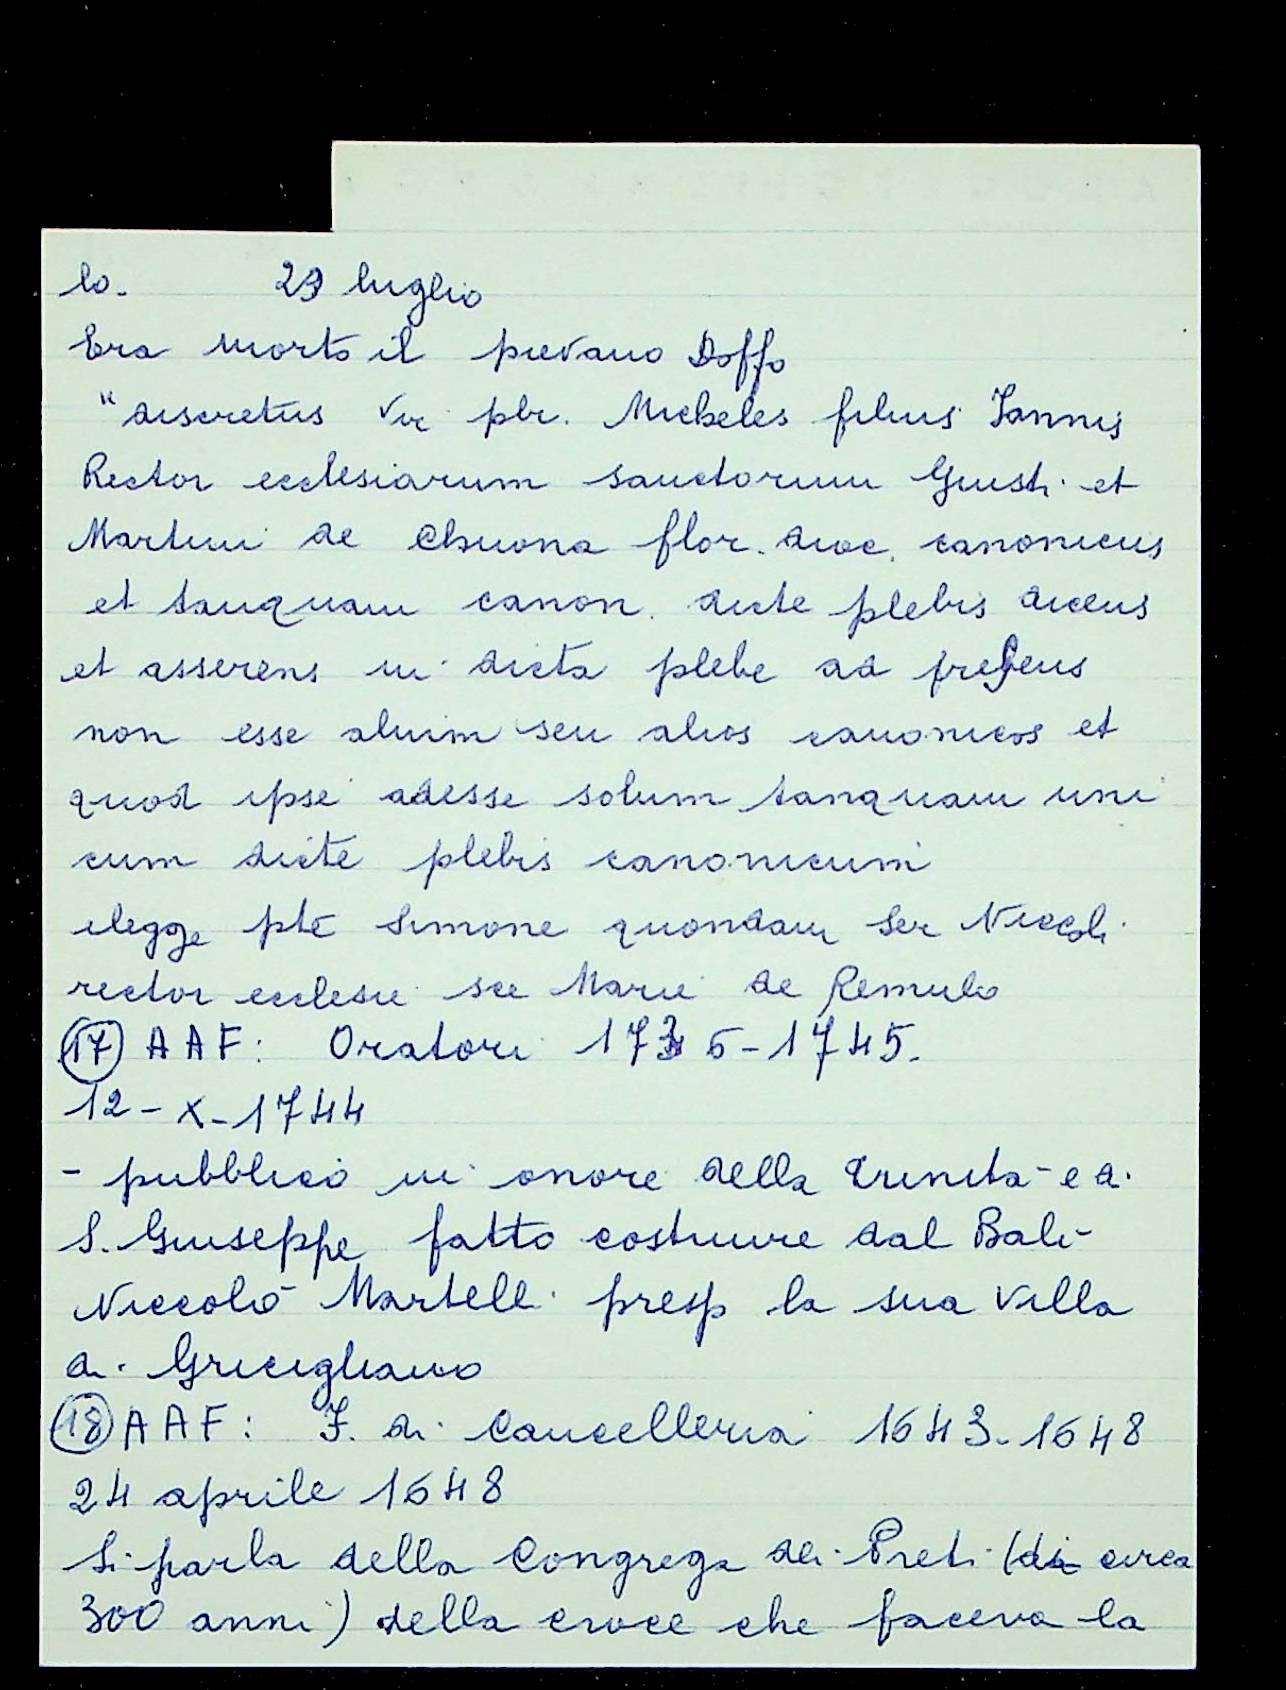 lo. 29 luglio
Era morto il pievano Doffo
"discretus vir pbr. Micheles filius Iannis
Rector ecclesiarum sanctorum Giusti et
Martini de Ebuona flor. dioc. canonicus
et tanquam canon. dicte plebis dicens
et asserens in dicta plebe ad presens
non esse alium seu alios canonicos et
quod ipse adesse solum tanquam uni
cum dicte plebis canonicum
elegge pte Simone quondam Ser Niccoli
rector ecclesie sce Marie de Remulo
(17) AAF: Oratori 1735-1745.
12-X-1744
- pubblico in onore della Trinità e di
S. Giuseppe fatto costruire dal Balì
Niccolò Martelli presp la sua villa
di Gricigliano
(18) AAF: F. di Cancelleria 1643-1648
24 aprile 1648
Si parla della Congrega dei Preti (di circa
300 anni) della croce che faceva la